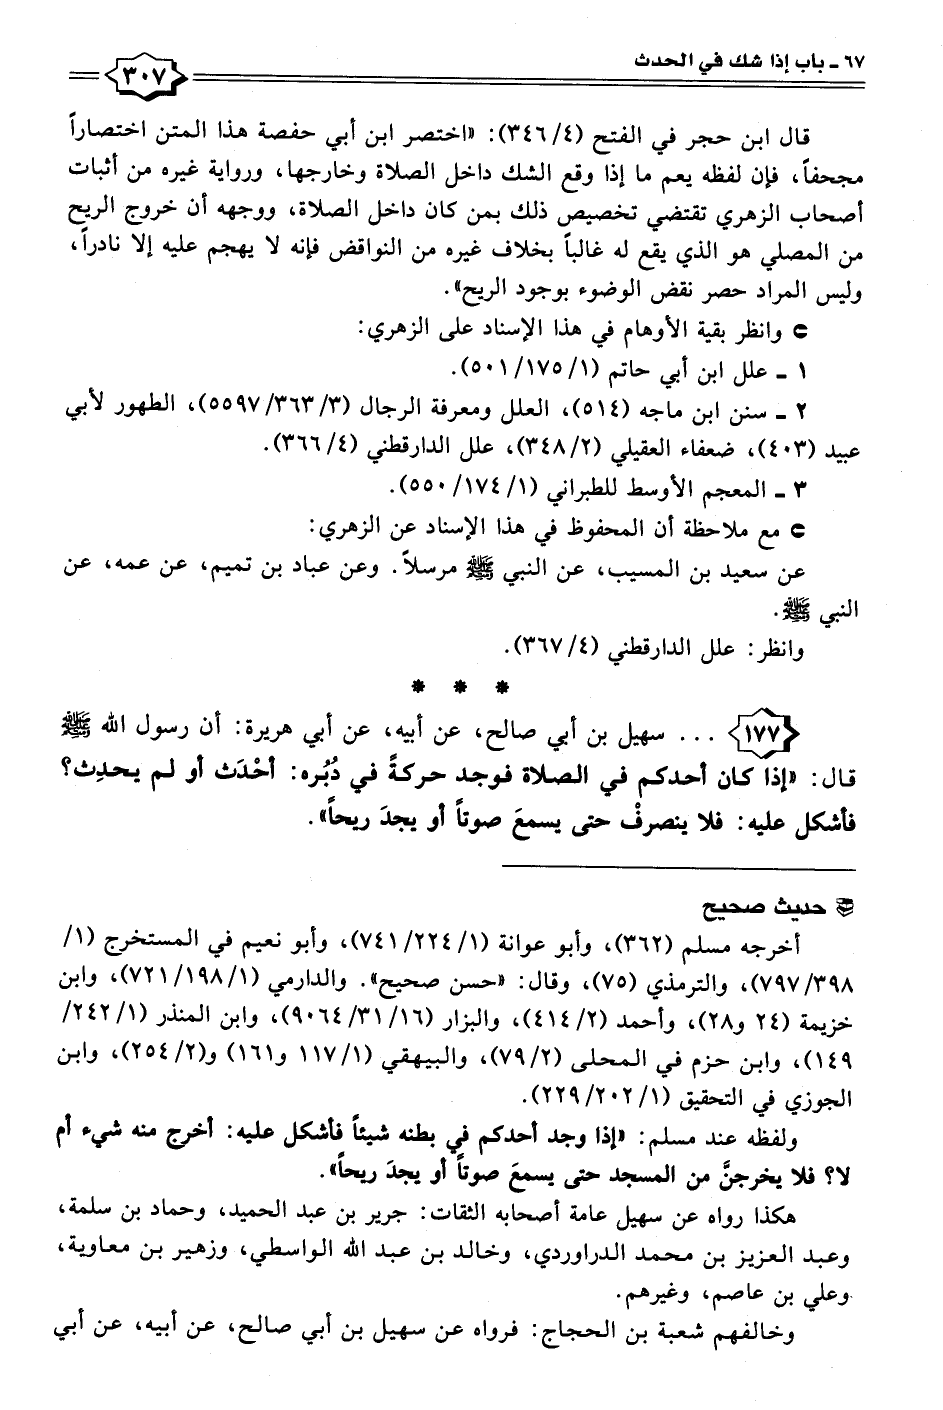 ٦٧ ـ باب إذا شك في الحدث
٣٠٧
قال ابن حجر في الفتح (٤/ ٣٤٦): «اختصر ابن أبي حفصة هذا المتن اختصاراً
مجحفاً، فإن لفظه يعم ما إذا وقع الشك داخل الصلاة وخارجها، ورواية غيره من أثبات
أصحاب الزهري تقتضي تخصيص ذلك بمن كان داخل الصلاة، ووجهه أن خروج الريح
من المصلي هو الذي يقع له غالباً بخلاف غيره من النواقض فإنه لا يهجم عليه إلا نادراً،
وليس المراد حصر نقض الوضوء بوجود الريح».
وانظر بقية الأوهام في هذا الإسناد على الزهري:
١ ـ علل ابن أبي حاتم (١/ ١٧٥/ ٥٠١).
٢ ـ سنن ابن ماجه (٥١٤)، العلل ومعرفة الرجال (٣/ ٣٦٣/ ٥٥٩٧)، الطهور لأبي
عبيد (٤٠٣)، ضعفاء العقيلي (٢/ ٣٤٨)، علل الدارقطني (٤/ ٣٦٦).
٣ ـ المعجم الأوسط للطبراني (١/ ١٧٤/ ٥٥٠).
مع ملاحظة أن المحفوظ في هذا الإسناد عن الزهري:
عن سعيد بن المسيب، عن النبي ﷺ مرسلاً. وعن عباد بن تميم، عن عمه، عن
النبي ﷺ.
وانظر: علل الدارقطني (٤/ ٣٦٧).
* * *
١٧٧ ... سهيل بن أبي صالح، عن أبيه، عن أبي هريرة: أن رسول الله ﷺ
قال: «إذا كان أحدكم في الصلاة فوجد حركةً في دُبُره: أحْدَث أو لم يحدِث؟
فأشكل عليه: فلا ينصرفْ حتى يسمعَ صوتاً أو يجدَ ريحاً».
حديث صحيح
أخرجه مسلم (٣٦٢)، وأبو عوانة (١/ ٢٢٤/ ٧٤١)، وأبو نعيم في المستخرج (١/
٣٩٨/ ٧٩٧)، والترمذي (٧٥)، وقال: «حسن صحيح». والدارمي (١/ ١٩٨/ ٧٢١)، وابن
خزيمة (٢٤ و٢٨)، وأحمد (٢/ ٤١٤)، والبزار (١٦/ ٣١/ ٩٠٦٤)، وابن المنذر (١/ ٢٤٢/
١٤٩)، وابن حزم في المحلى (٢/ ٧٩)، والبيهقي (١/ ١١٧ و١٦١) و(٢/ ٢٥٤)، وابن
الجوزي في التحقيق (١/ ٢٠٢/ ٢٢٩).
ولفظه عند مسلم: «إذا وجد أحدكم في بطنه شيئاً فأشكل عليه: أخرج منه شيء أم
لا؟ فلا يخرجنَّ من المسجد حتى يسمعَ صوتاً أو يجدَ ريحاً».
هكذا رواه عن سهيل عامة أصحابه الثقات: جرير بن عبد الحميد، وحماد بن سلمة،
وعبد العزيز بن محمد الدراوردي، وخالد بن عبد الله الواسطي، وزهير بن معاوية،
وعلي بن عاصم، وغيرهم.
وخالفهم شعبة بن الحجاج: فرواه عن سهيل بن أبي صالح، عن أبيه، عن أبي